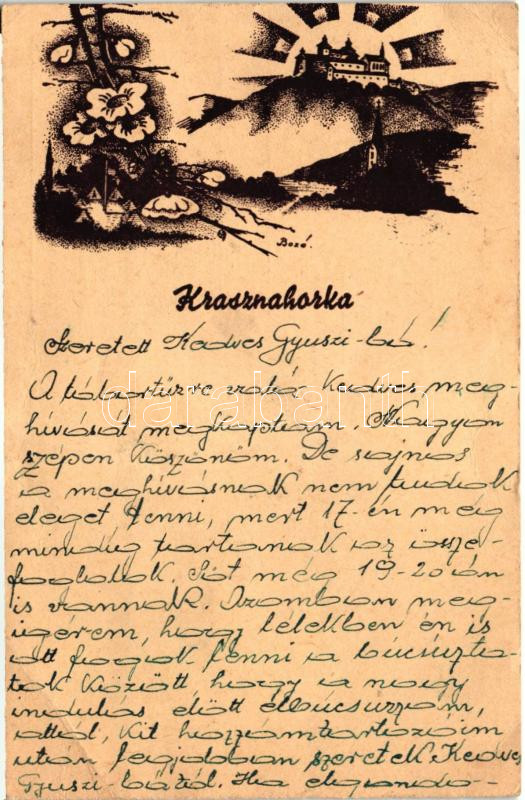 Bozó.
Krasznahorka
Szeretett Kedves Gyuszi-bá!
A tábortűzre szóló Kedves meg-
hívását megkaptam. Nagyon
szépen Köszönöm. De sajnos
a meghívásnak nem tudok
eleget tenni, mert 17-én még
mindig tartanak az össze-
foglalók. Sőt még 19-20-án
is vannak. Azonban meg-
ígérem, hogy lélekben én is
ott fogok lenni a búcsúzta-
tók Között hogy a nagy
indulás előtt elbúcsúzzam,
attól, Kit hozzámtartozóim
után legjobban szeretek Kedves
Gyuszi-bától. Ha elgondo-
darabanth